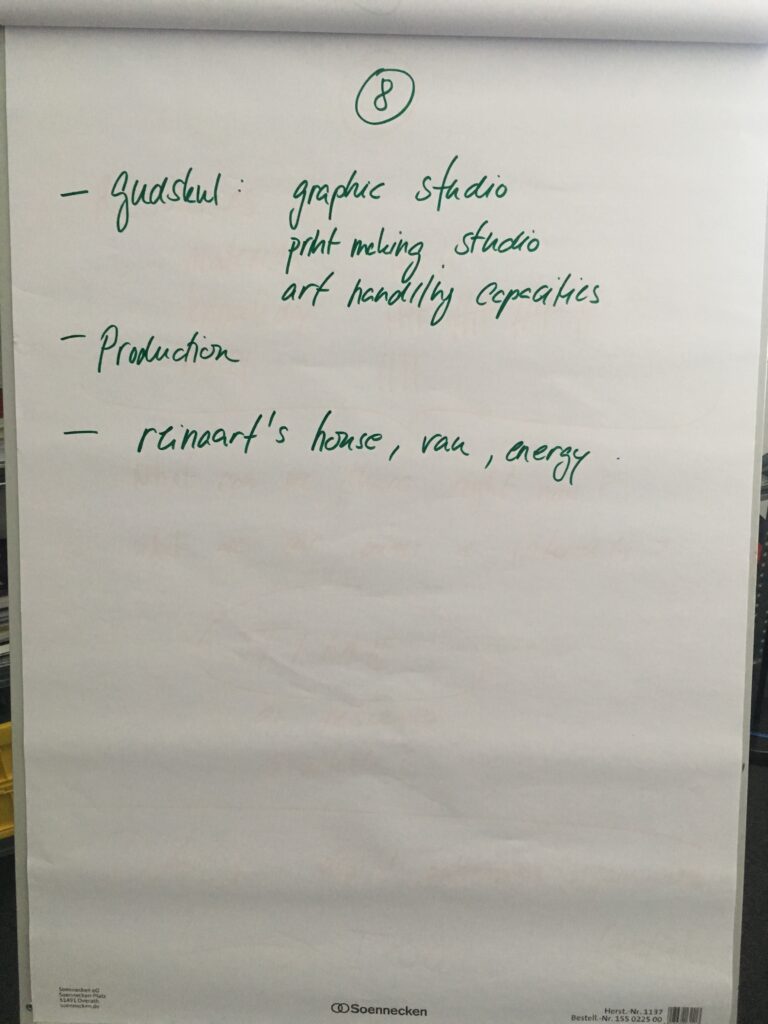 8
- gudskul: graphic studio
print making studio
art handling capacities
- Production
- reinaart's house, van, energy.
Soennecken eG
Soennecken-Platz
51491 Overath
soennecken.de
Soennecken
Herst.-Nr. 1137
Bestell.-Nr. 155 0225 00